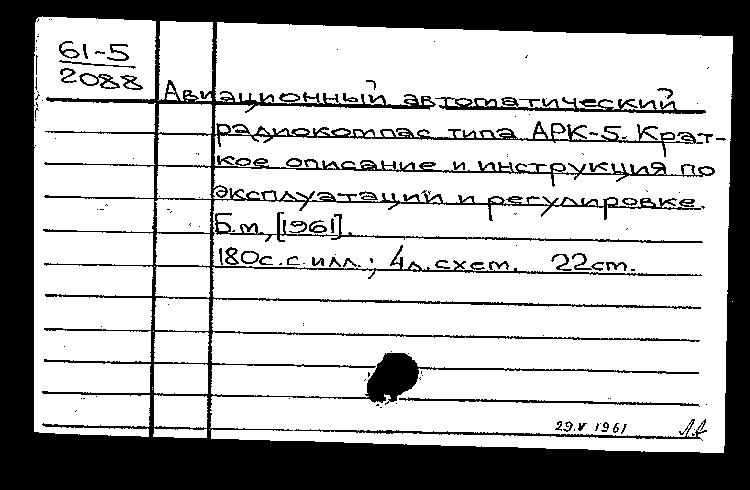 61-5
2088
Авиационный автоматический
радиокомпас типа АРК-5. Крат-
кое описание и инструкция по
эксплуатации и регулировке.
Б.м., [1961].
180с. с илл.; 4л. схем. 22cm.
29.V 1961